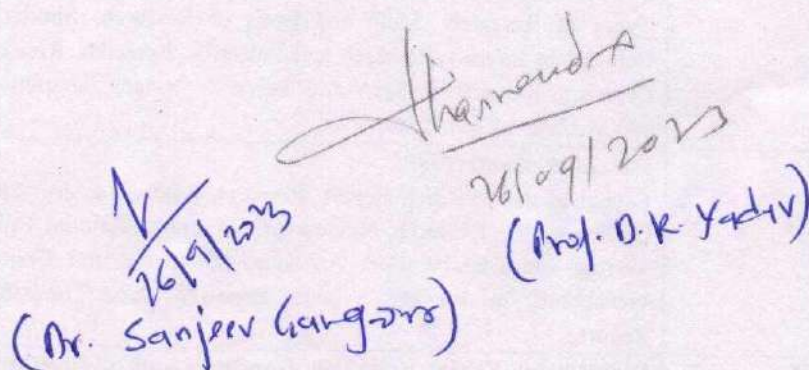 Dharmendra
26/09/2023
(Prof. D. K. Yadav)
26/9/2023
(Dr. Sanjeev Gangwar)